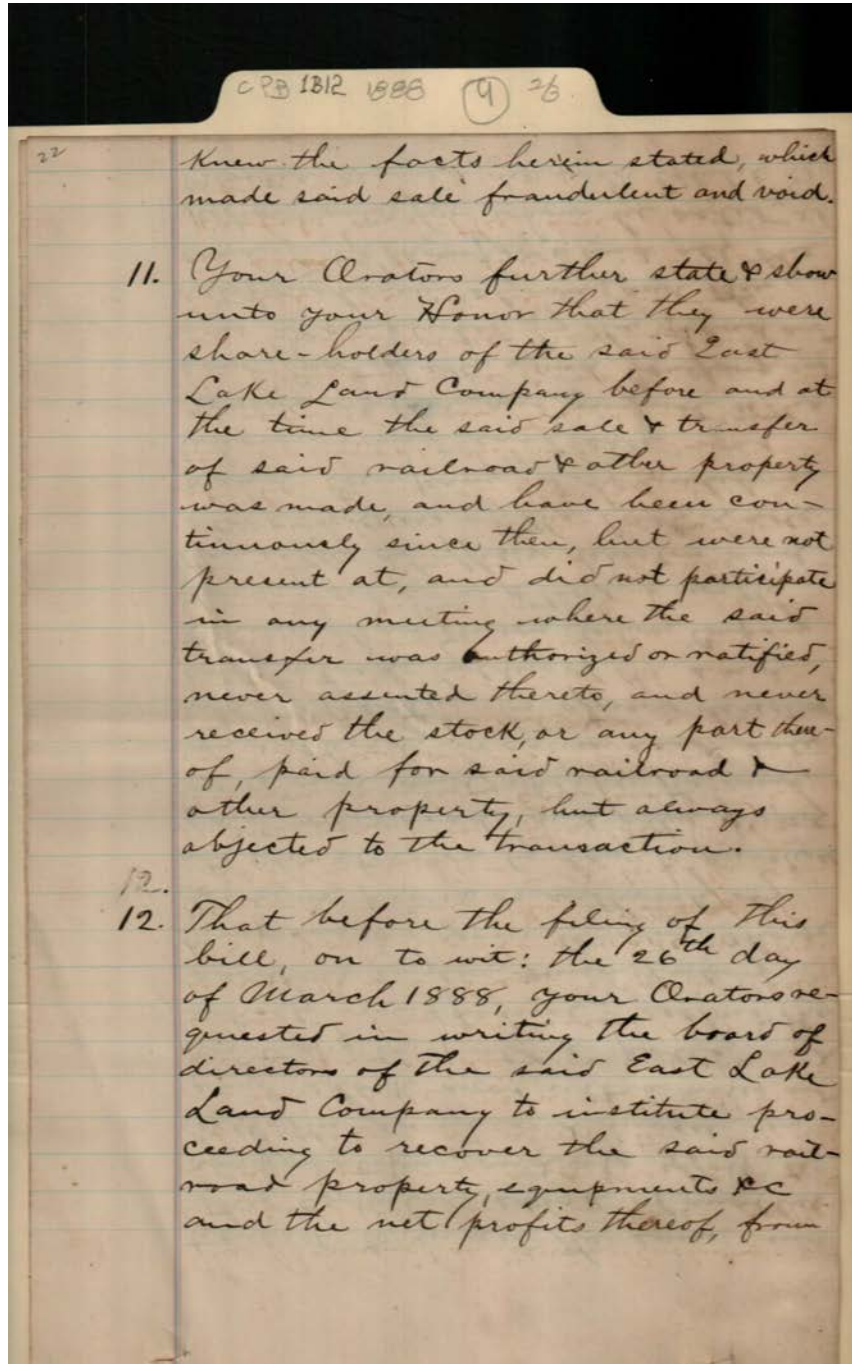 CPB 1312 1888 (4) 26
22
Knew the facts herein stated, which
made said sale fraudulent and void.
11. Your Orators further state & show
unto your Honor that they were
share-holders of the said East
Lake Land Company before and at
the time the said sale & transfer
of said railroad & other property
was made, and have been con-
tinuously since then, but were not
present at, and did not participate
in any meeting where the said
transfer was authorized or ratified,
never assented thereto, and never
received the stock, or any part there-
of, paid for said railroad &
other property, but always
objected to the transaction.
12.
12. That before the filing of this
bill, on to wit: the 26th day
of March 1888, your Orators re-
quested in writing the board of
directors of the said East Lake
Land Company to institute pro-
ceeding to recover the said rail-
road property, equipments &c
and the net profits thereof, from